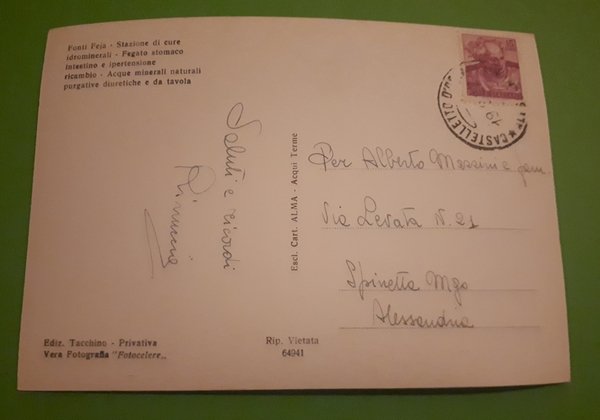 Fonti Feja - Stazione di cure
idrominerali - Fegato stomaco
intestino e ipertensione
ricambio - Acque minerali naturali
purgative diuretiche e da tavola
Saluti e ricordi
Rinuccia
Escl. Cart. ALMA - Acqui Terme
CASTELLETTO D'
Per Alberto Massini e fam.
Via Levata N. 21
Spinetta Mgo
Alessandria
Ediz. Tacchino - Privativa
Vera Fotografia "Fotocelere„
Rip. Vietata
64941